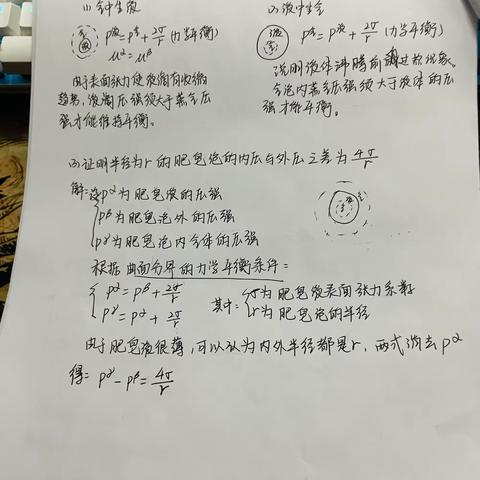 (1) 气中生液
p^α = p^β + 2σ/r (力学平衡)
μ^α = μ^β
由于表面张力使液滴有收缩
趋势,液滴压强须大于蒸气压
强才能维持平衡。
(2) 液中生气
p^β = p^α + 2σ/r (力学平衡)
说明液体沸腾前的过热现象。
气泡内蒸气压强须大于液体的压
强才能平衡。
(3) 证明半径为r的肥皂泡的内压与外压之差为 4σ/r
解:设 p^α为肥皂液的压强
p^β为肥皂泡外的压强
p^γ为肥皂泡内气体的压强
根据曲面分界的力学平衡条件:
p^α = p^β + 2σ/r
p^γ = p^α + 2σ/r
其中: σ为肥皂液表面张力系数
r为肥皂泡的半径
由于肥皂液很薄,可以认为内外半径都是r,两式消去p^α
得: p^γ - p^β = 4σ/r